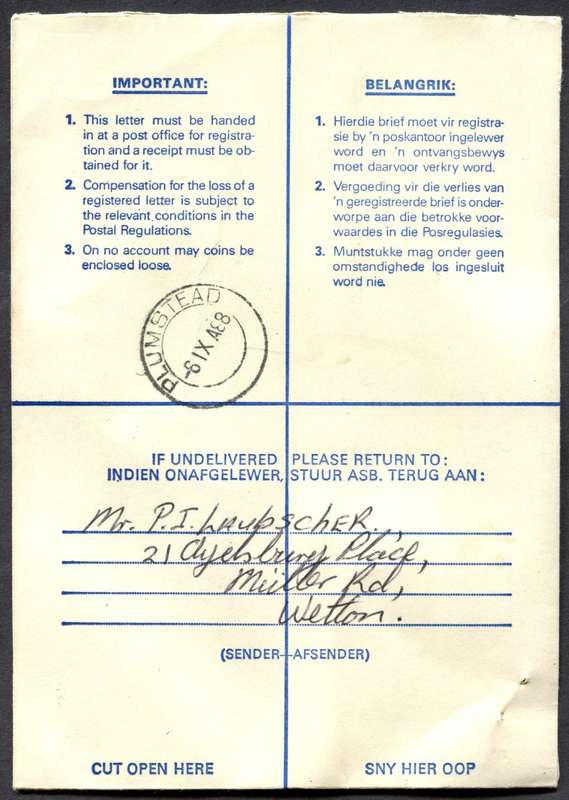 IMPORTANT:
1. This letter must be handed
in at a post office for registra-
tion and a receipt must be ob-
tained for it.
2. Compensation for the loss of a
registered letter is subject to
the relevant conditions in the
Postal Regulations.
3. On no account may coins be
enclosed loose.
BELANGRIK:
1. Hierdie brief moet vir registra-
sie by 'n poskantoor ingelewer
word en 'n ontvangsbewys
moet daarvoor verkry word.
2. Vergoeding vir die verlies van
'n geregistreerde brief is onder-
worpe aan die betrokke voor-
waardes in die Posregulasies.
3. Muntstukke mag onder geen
omstandighede los ingesluit
word nie.
PLUMSTEAD
IF UNDELIVERED PLEASE RETURN TO:
INDIEN ONAFGELEWER, STUUR ASB. TERUG AAN:
Mr. P.I. Laubscher.,
21 Place,
Müller Rd,
Wetton.
(SENDER–AFSENDER)
CUT OPEN HERE
SNY HIER OOP